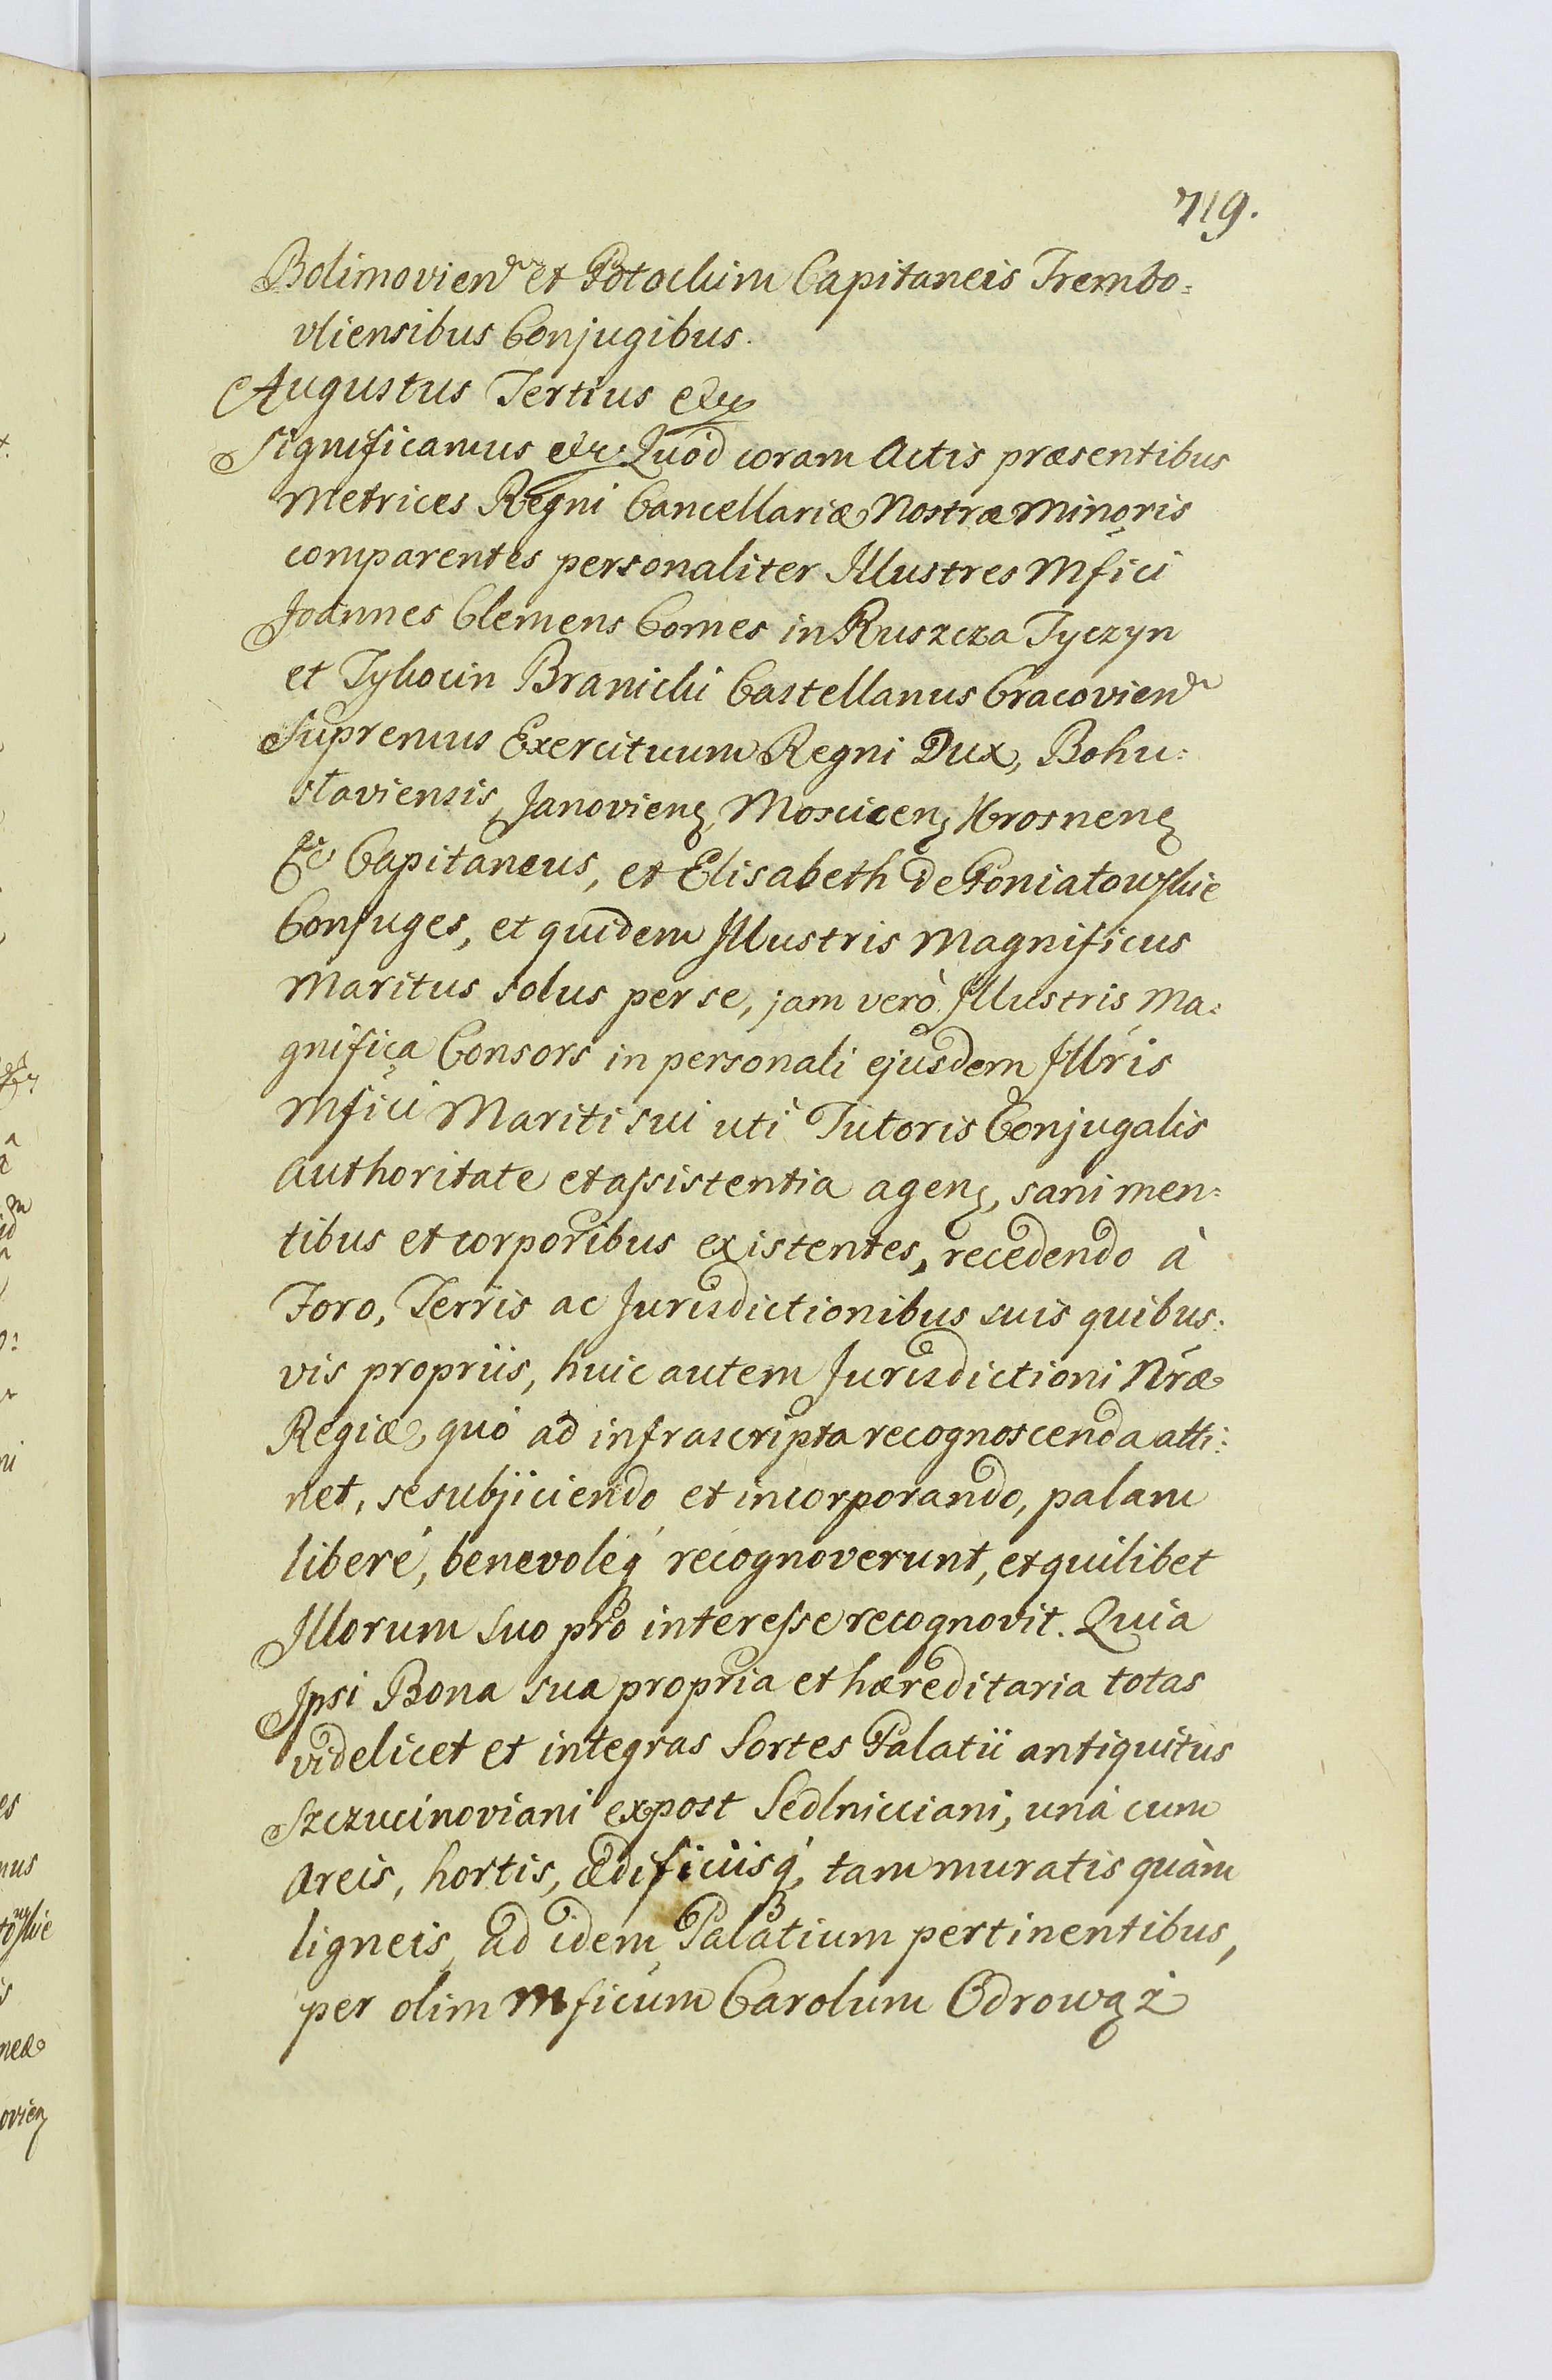 719.
Bolimovien et Potockim Capitaneis Trembo=
vliensibus Conjugibus.
Augustus Tertius etc
Significamus etc Quod coram Actis præsentibus
Metrices Regni Cancellariæ Nostræ Minoris
comparentes personaliter Illustres Mfici
Joannes Clemens Comes in Ruszcza Tyczyn
et Tykocin Branicki Castellanus Cracovien
Supremus Exercituum Regni Dux, Bohu=
slaviensis, Janovien, Moscicen, Krosnen
etc Capitaneus, et Elisabeth de Poniatowskie
Conjuges, et quidem Illustris Magnificus
Maritus solus per se, jam verò Illustris Ma=
gnifica Consors in personali ejusdem Illris
Mfici Mariti sui uti Tutoris Conjugalis
authoritate et assistentia agen, sani men=
tibus et corporibus existentes, recedendo à
Foro, Terris ac Jurisdictionibus suis quibus=
vis propriis, huic autem Jurisdictioni Nræ
Regiæ, quò ad infrascripta recognoscenda atti=
net, se subjiciendo et incorporando, palam
liberé, benevoleq́ recognoverunt, et quilibet
Illorum suo pro interesse recognovit. Quia
Ipsi Bona sua propria et hæreditaria totas
videlicet et integras Sortes Palatii antiquitus
Szczucinoviani expost Sedlnicciani, unà cum
areis, hortis, ædificiisq́, tam muratis quàm
ligneis, ad idem Palatium pertinentibus,
per olim Mficum Carolum Odrowąż